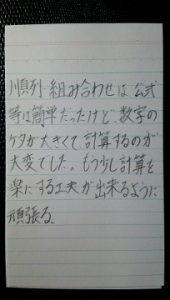 順列・組み合わせは公式
等は簡単だったけど、数字の
ケタが大きくて、計算するのが
大変でした。もう少し計算を
楽にする工夫が出来るように
頑張る。